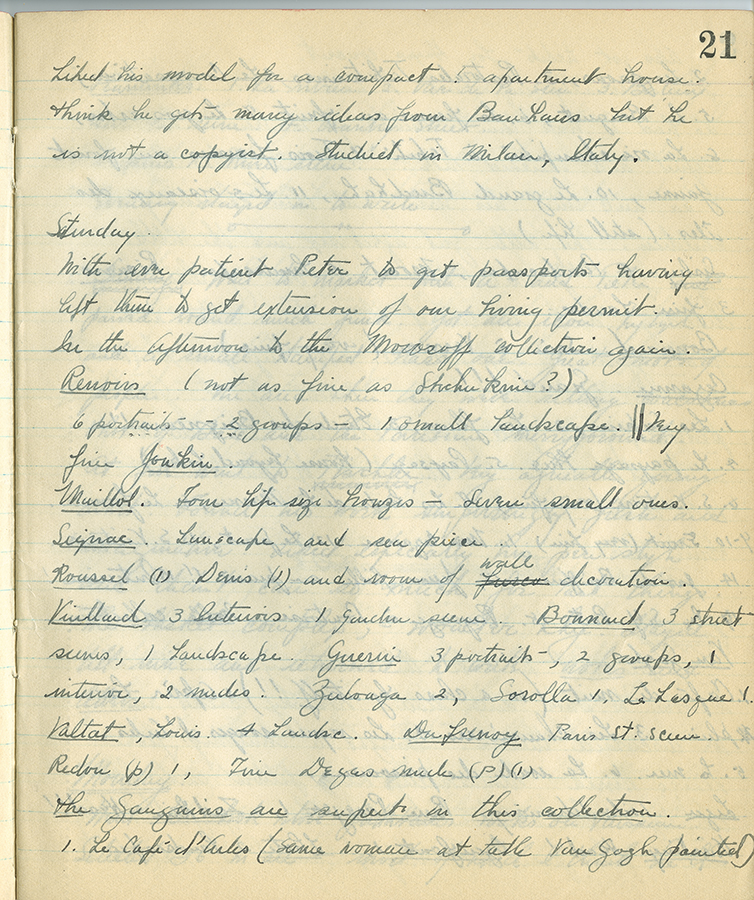 21
Liked his model for a compact apartment house.
think he gets many ideas from Bauhaus but he
is not a copyist. Studied in Milan, Italy.
Saturday.
With ever patient Peter to get passports having
left them to get extension of our living permit.
In the afternoon to the Morosoff collection again.
Renoirs (not as fine as Stchukine?)
6 portraits - 2 groups - 1 small landscape. || Very
fine Jonkin.
Maillol. Four life size bronzes - Seven small ones.
Signac. Landscape and sea piece.
Roussel (1) Denis (1) and room of fresco wall decoration.
Vuillard 3 Interiors 1 garden scene. Bonnard 3 street
scenes, 1 Landscape. Guerin 3 portraits, 2 groups, 1
interior, 2 nudes. Zuloaga 2, Sorolla 1.
Valtat, Louis. 4 Landsc. Dufrenoy Paris St. scene.
Redon (p) 1, Fine Degas nude (P) (1)
the Gauguins are superb in this collection.
1. Le Café d'Arles (same woman at table Van Gogh painted)